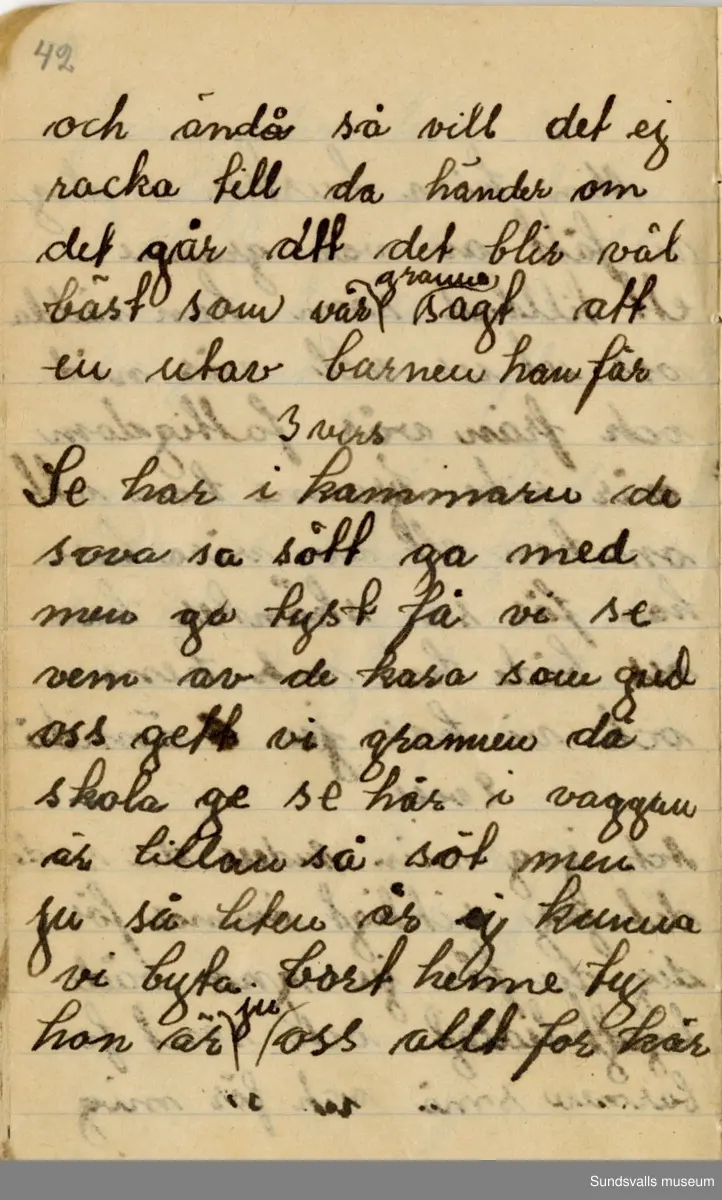 42
och ändå så vill det ej
racka till da händer om
det går dtt det blir väl
bäst som vår granne sagt att
en utav barnen han får
3 vers
Se har i kammarn de
sova sa sött ga med
men ga tyst få vi se
vem av de kara som gud
oss gett vi grannen då
skola ge se här i vaggan
är lillan så söt men
ju så liten är ej kunna
vi byta bort henne ty
hon är ju oss allt for kär
Sundsvalls museum